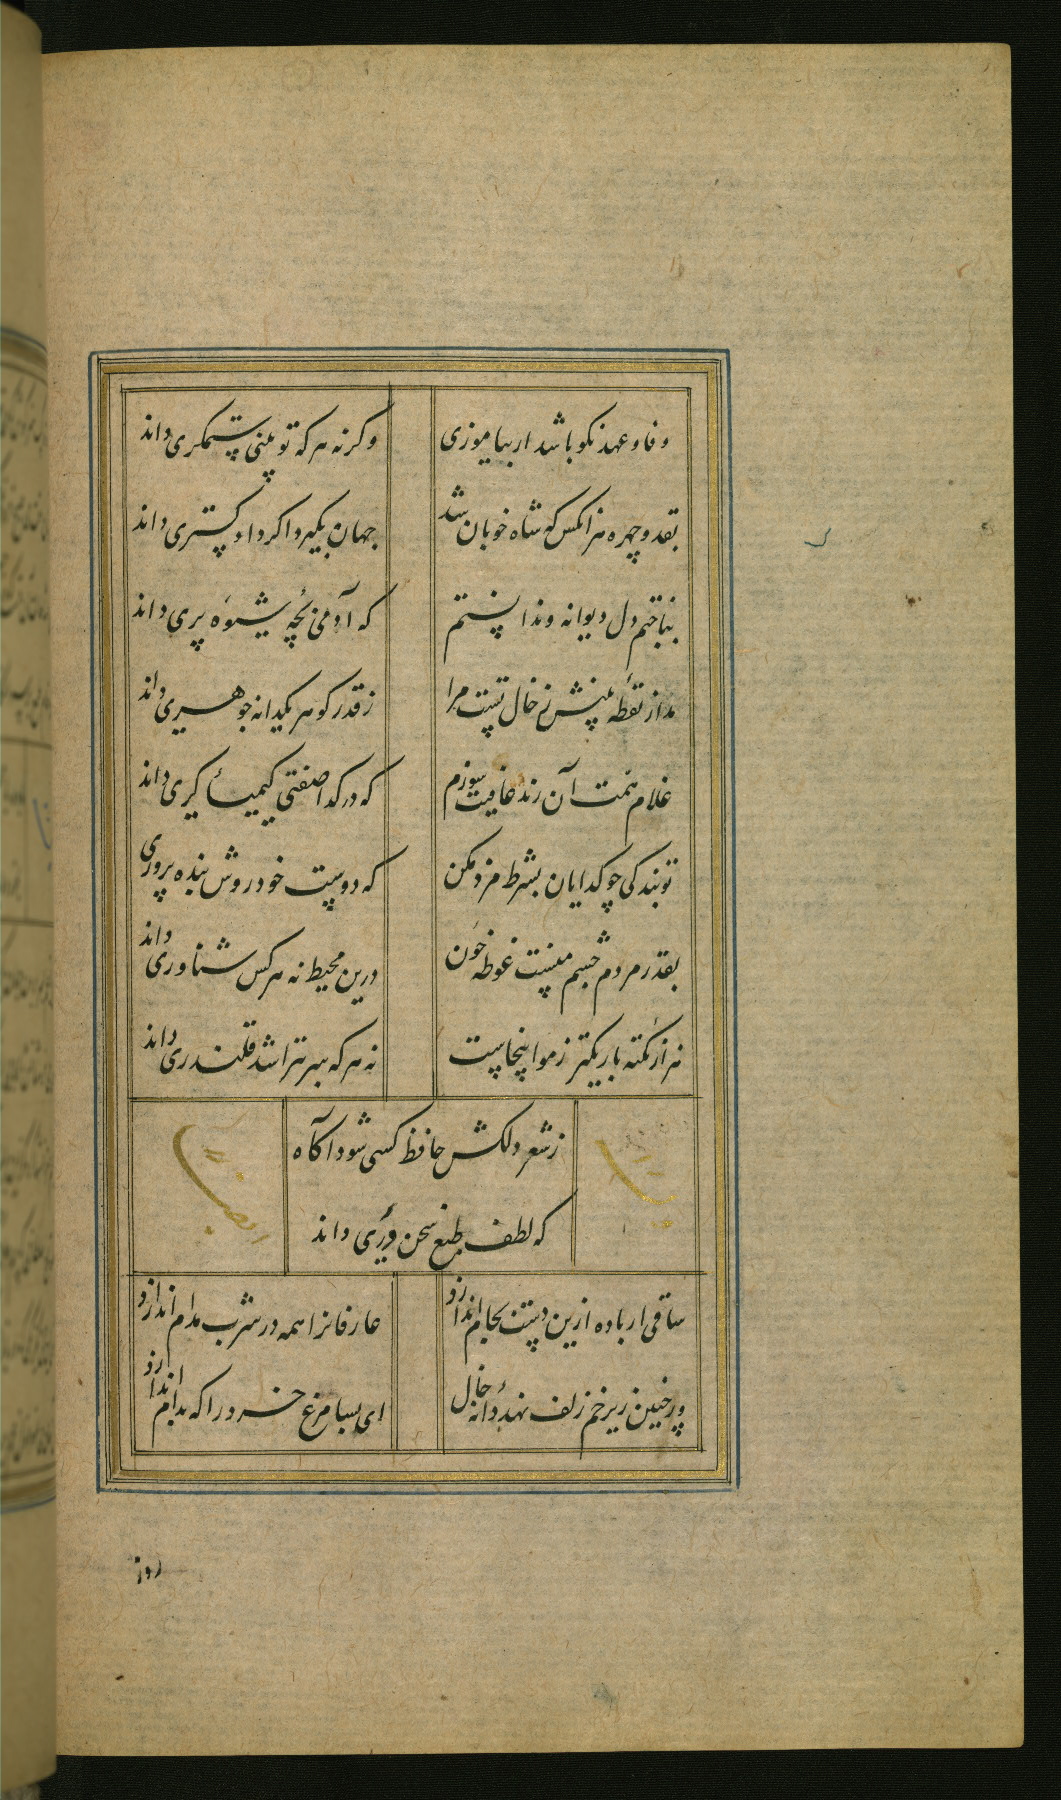 وفا و عهد نکو باشد ار بیاموزی
وگرنه هر که تو بینی ستمگری داند
بقد و چهره هر آنکس که شاه خوبان شد
جهان بگیرد اگر دادگستری داند
بباختم دل دیوانه و ندانستم
که آدمی بچه شیوه پری داند
مدار نقطه بینش ز خال تست مرا
ز قدر گوهر یکدانه جوهری داند
غلام همت آن رند عافیت سوزم
که در گدا صفتی کیمیاگری داند
تو بندگی چو گدایان بشرط مزد مکن
که دوست خود روش بنده پروری داند
بقدر مردم چشم منست غوطه خون
درین محیط نه هر کس شناوری داند
هزار نکته باریکتر ز مو اینجاست
نه هر که سر بتراشد قلندری داند
ز شعر دلکش حافظ کسی شود آگاه
که لطف طبع سخن دری داند
ساقی ار باده ازین دست بجام اندازد
عارفانرا همه در شرب مدام اندازد
ور چنین زیر خم زلف نهد دانه خال
ای بسا مرغ خرد را که بدام اندازد
روز